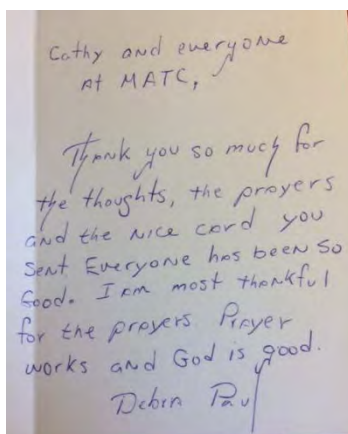 Cathy and everyone
At MATC,
Thank you so much for
the thoughts, the prayers
and the nice card you
sent. Everyone has been so
Good. I am most thankful
for the prayers. Prayer
works and God is good.
Debra Paul